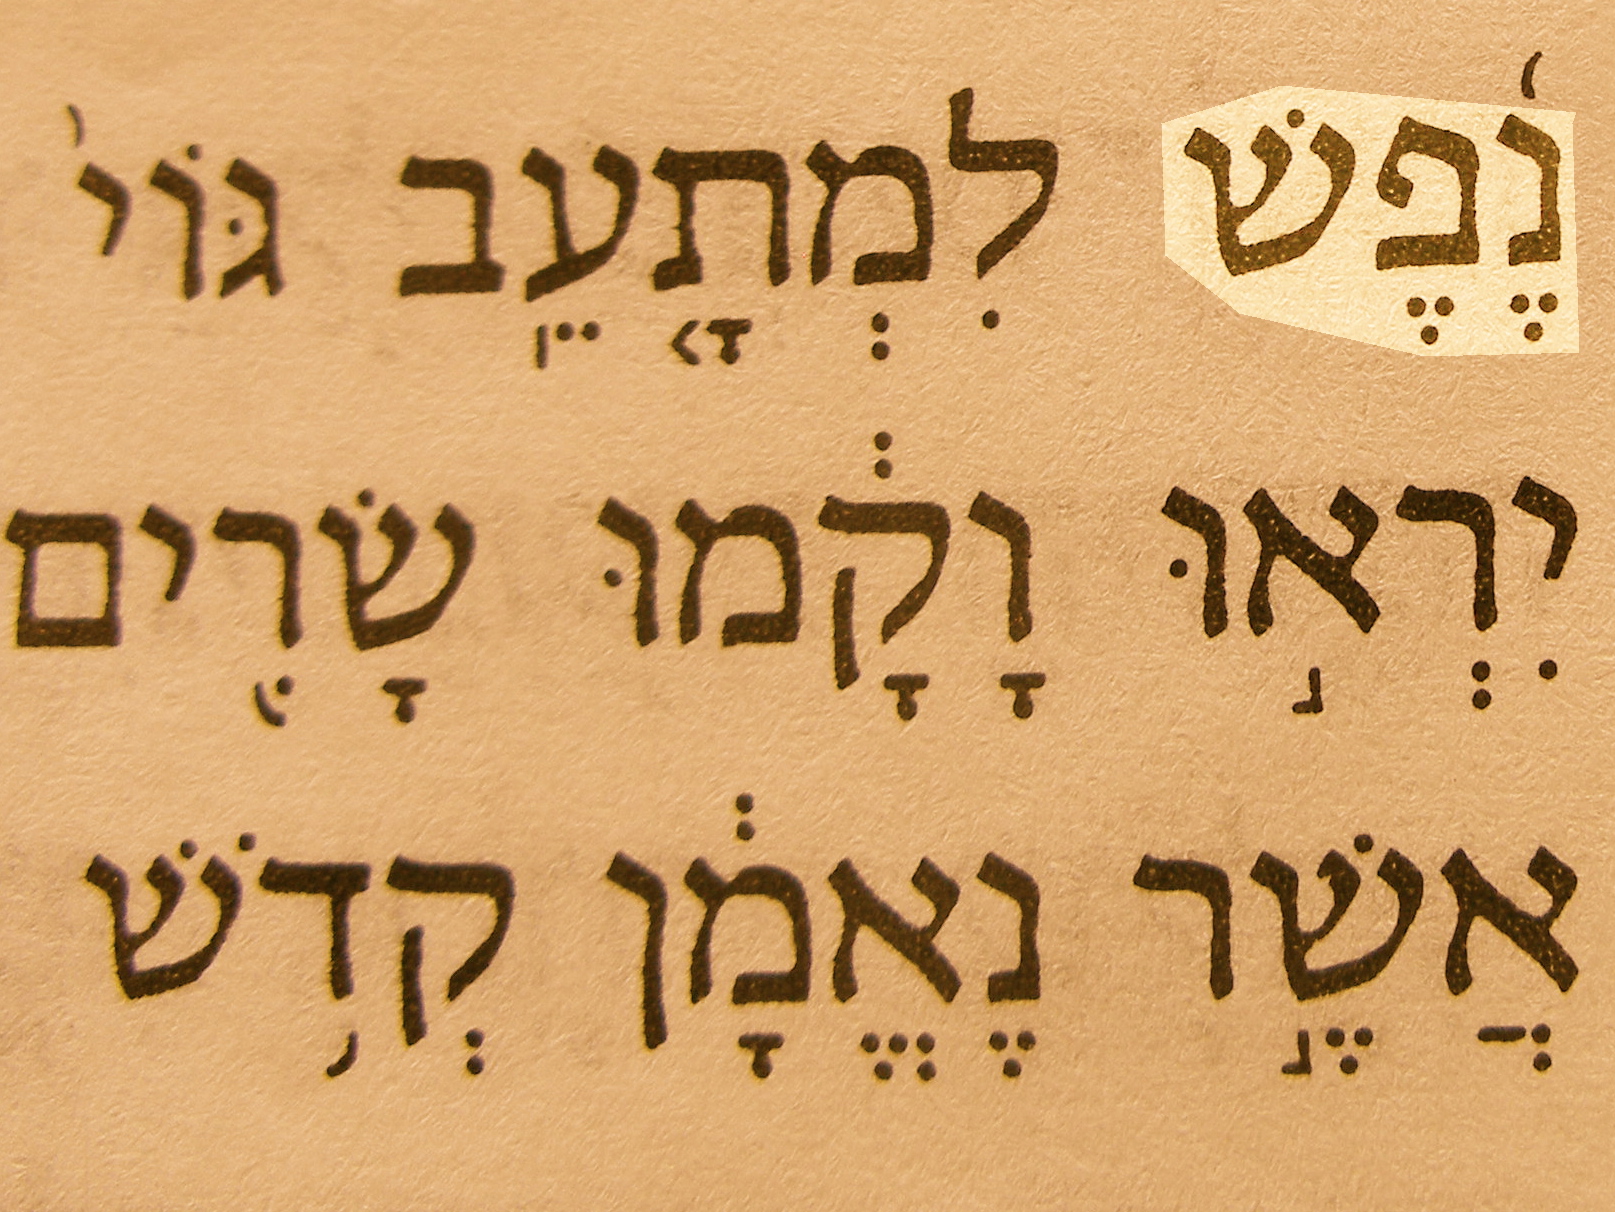 נֶ֜פֶשׁ לִמְתָ֤עֵֽב גּוֹי֙
יִרְא֣וּ וָקָ֔מוּ שָׂרִ֖ים
אֲשֶׁ֣ר נֶאֱמָ֔ן קְדֹ֥שׁ